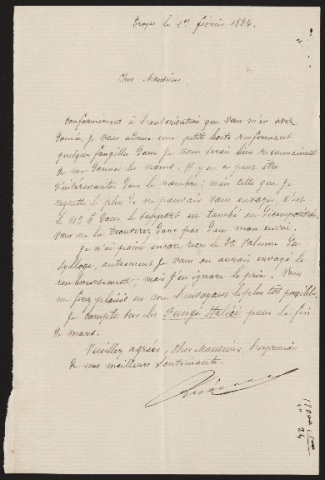 Troyes le 1er février 1884.
Cher Monsieur
Conformément à l'autorisation que vous m'en avez
donnée, je vous adresse une petite boîte renfermant
quelques fongilles dont je vous serais bien reconnaissant
de me donner les noms. Il y en a peut être
d'intéressantes dans le nombre; mais celle que je
regrette le plus de ne pouvoir vous envoyer c'est
le N3 € dont le support est tombé en décomposition.
Vous ne la trouverez donc pas dans mon envoi.
Je n'ai point encore reçu le 2e volume du
Sylloge, autrement je vous en aurais envoyé le
remboursement; mais j'en ignore le prix. Vous
me ferez plaisir en me l'envoyant le plus tôt possible.
Je compte sur les Fungi Italici pour la fin
de mars.
Veuillez agréer, Cher Monsieur l'expression
de mes meilleurs sentiments.